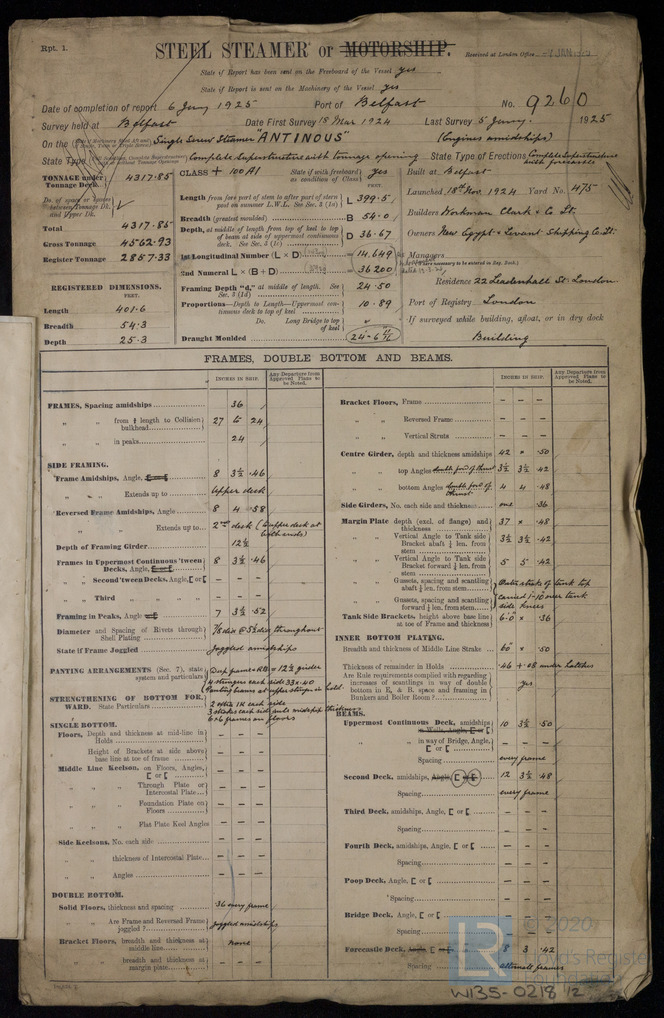 Rpt. 1.
STEEL STEAMER or MOTORSHIP.
Received at London Office
State if Report has been sent on the Freeboard of the Vessel yes
State if Report is sent on the Machinery of the Vessel yes
Date of completion of report 6 Jany 1925 Port of Belfast No. 9260
Survey held at Belfast Date First Survey 18 Mar 1924 Last Survey 5 Jany. 1925
On the Single Screw Steamer "ANTINOUS" (Engines amidships)
State Type Complete Superstructure with tonnage opening State Type of Erections Complete Superstructure with forecastle
TONNAGE under Tonnage Deck 4317.85
Do. of space or spaces between Tonnage Dk. and Upper Dk.
Total 4317.85
Gross Tonnage 4562.93
Register Tonnage 2867.33
REGISTERED DIMENSIONS.
FEET.
Length 401.6
Breadth 54.3
Depth 25.3
CLASS + 100 A1 State if with freeboard as condition of Class yes
FEET.
Length from fore part of stem to after part of stern post on summer L.W.L. See Sec. 3 (1a) L 399.5
Breadth (greatest moulded) B 54.0
Depth, at middle of length from top of keel to top of beam at side of uppermost continuous deck. See Sec. 3 (1c) D 36.67
1st Longitudinal Number (L × D) = 14.649
2nd Numeral L × (B + D) = 36200
Framing Depth "d," at middle of length. See Sec. 3 (1d) 24.50
Proportions—Depth to Length—Uppermost continuous deck to top of keel 10.89
Do. Long Bridge to top of keel
Draught Moulded 24-6 11/16
Built at Belfast
Launched 18th Nov. 1924 Yard No. 475
Builders Workman Clark & Co. Lt.
Owners New Egypt & Levant Shipping Co. Lt.
Managers
Residence 22 Leadenhall St. London
Port of Registry London
If surveyed while building, afloat, or in dry dock
Building
FRAMES, DOUBLE BOTTOM AND BEAMS.
INCHES IN SHIP. Any Departure from Approved Plans to be Noted.
INCHES IN SHIP. Any Departure from Approved Plans to be Noted.
FRAMES, Spacing amidships 36
" " from 1/5 length to Collision bulkhead 27 to 24
" " in peaks 24
SIDE FRAMING.
Frame Amidships, Angle, 8 3½ .46
" " Extends up to upper deck
Reversed Frame Amidships, Angle 8 4 .58
" " Extends up to 2nd deck (to upper deck at both ends)
Depth of Framing Girder 12½
Frames in Uppermost Continuous 'tween Decks, Angle, 8 3½ .46
" Second 'tween Decks, Angle, [ or [ – – –
" Third " " " " – – –
Framing in Peaks, Angle 7 3½ .52
Diameter and Spacing of Rivets through Shell Plating 7/8 dia @ 5¼ dia throughout
State if Frame Joggled Joggled amidships
PANTING ARRANGEMENTS (Sec. 7), state system and particulars Deep frames RB = 12½ girder
4 stringers each side 33×40
Panting beams at upper stringer in hold.
STRENGTHENING OF BOTTOM FORWARD. State Particulars
6×6 frames on floors
SINGLE BOTTOM.
Floors, Depth and thickness at mid-line in Holds – – –
" Height of Brackets at side above base line at toe of frame – – –
Middle Line Keelson, on Floors, Angles, [ or [ – – –
" " Through Plate or Intercostal Plate – – –
" " Foundation Plate on Floors – – –
" " Flat Plate Keel Angles – – –
Side Keelsons, No. each side – – –
" " thickness of Intercostal Plate – – –
" " Angles – – –
DOUBLE BOTTOM.
Solid Floors, thickness and spacing .36 every frame
" " Are Frame and Reversed Frame joggled? Joggled amidships
Bracket Floors, breadth and thickness at middle line none
" " breadth and thickness at margin plate – – –
Bracket Floors, Frame – – –
" " Reversed Frame – – –
" " Vertical Struts – – –
Centre Girder, depth and thickness amidships 42 × .50
" " top Angles 3½ 3½ .42
" " bottom Angles 4 4 .48
Side Girders, No. each side and thickness one .36
Margin Plate depth (excl. of flange) and thickness 37 × .48
" " Vertical Angle to Tank side Bracket abaft ¼ len. from stem 3½ 3½ .42
" " Vertical Angle to Tank side Bracket forward ¼ len. from stem 5 5 .42
" " Gussets, spacing and scantling abaft ¼ len. from stem Outer strake of tank top
" " Gussets, spacing and scantling forward ¼ len. from stem carried 1-10 over tank side knees
Tank Side Brackets, height above base line at toe of Frame and thickness 6.0 × .36
INNER BOTTOM PLATING.
Breadth and thickness of Middle Line Strake 60 × .50
Thickness of remainder in Holds .46 + .08 under hatches
Are Rule requirements complied with regarding increases of scantlings in way of double bottom in E. & B. space and framing in Bunkers and Boiler Room? yes
BEAMS.
Uppermost Continuous Deck, amidships 10 3½ .50
" " in way of Bridge, Angle, [ or [ – – –
Spacing every frame
Second Deck, amidships, Angle, 12 3½ .48
Spacing every frame
Third Deck, amidships, Angle, [ or [ – – –
Spacing – – –
Fourth Deck, amidships, Angle, [ or [ – – –
Spacing – – –
Poop Deck, Angle, [ or [ – – –
Spacing – – –
Bridge Deck, Angle, [ or [ – – –
Spacing – – –
Forecastle Deck, 8 3 .42
Spacing alternate frames
© 2020
LR
Lloyd's Register
Foundation
W135-0218 1/2